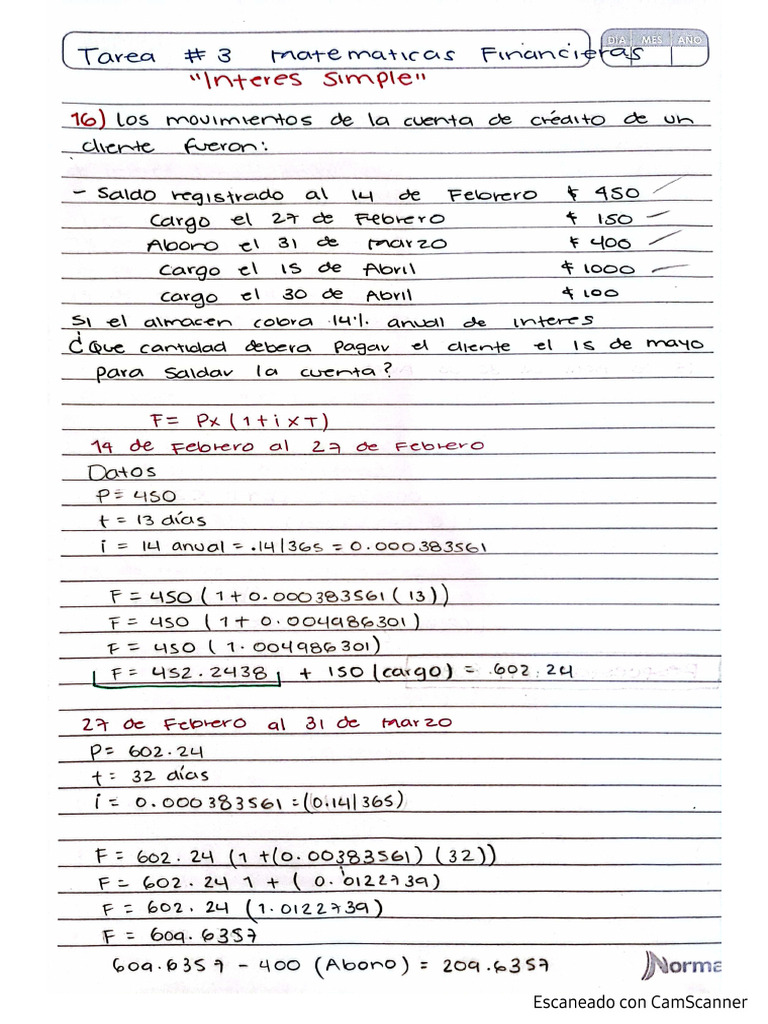 Tarea # 3 Matematicas Financieras
DIA MES AÑO
"Interes Simple"
16) Los movimientos de la cuenta de crédito de un
cliente fueron:
- Saldo registrado al 14 de Febrero $ 450
Cargo el 27 de Febrero $ 150
Abono el 31 de marzo $ 400
Cargo el 15 de Abril $ 1000
cargo el 30 de Abril $ 100
Si el almacen cobra 14% anual de interes
¿Que cantidad debera pagar el cliente el 15 de mayo
para saldar la cuenta?
F= Px (1+ixT)
14 de Febrero al 27 de Febrero
Datos
P= 450
t = 13 días
i = 14 anual = .14/365 = 0.000383561
F= 450 (1+0.000383561(13))
F= 450 (1+ 0.004986301)
F= 450 (1.004986301)
F= 452.2438 + 150 (cargo) = 602.24
27 de Febrero al 31 de Marzo
P= 602.24
t = 32 días
i = 0.000383561 = (0.14/365)
F= 602.24 (1+(0.00383561)(32))
F= 602.24 1 + (0.0122739)
F= 602.24 (1.0122739)
F= 609.6357
609.6357 - 400 (Abono) = 209.6357
Norma
Escaneado con CamScanner